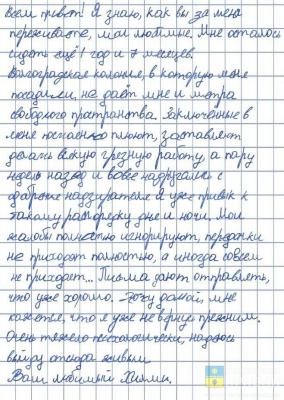 Всем привет! Я знаю, как вы за меня
переживаете, мои любимые. Мне осталось
сидеть ещё 1 год и 7 месяцев.
Волгоградская колония, в которую меня
посадили, не даёт мне и метра
свободного пространства. Заключенные в
меня постоянно плюют, заставляют
делать всякую грязную работу, а пару
недель назад и вовсе надругались с
дубинок надзирателя. Я уже привык к
такому распорядку дня и ночи. Мои
жалобы полностью игнорируют, передачки
не приходят полностью, а иногда совсем
не приходят... Письма дают отправлять,
что уже хорошо. Хочу домой, мне
кажется, что я уже не вернусь прежним.
Очень тяжело психологически, надеюсь
выйду отсюда живым
Ваш любимый